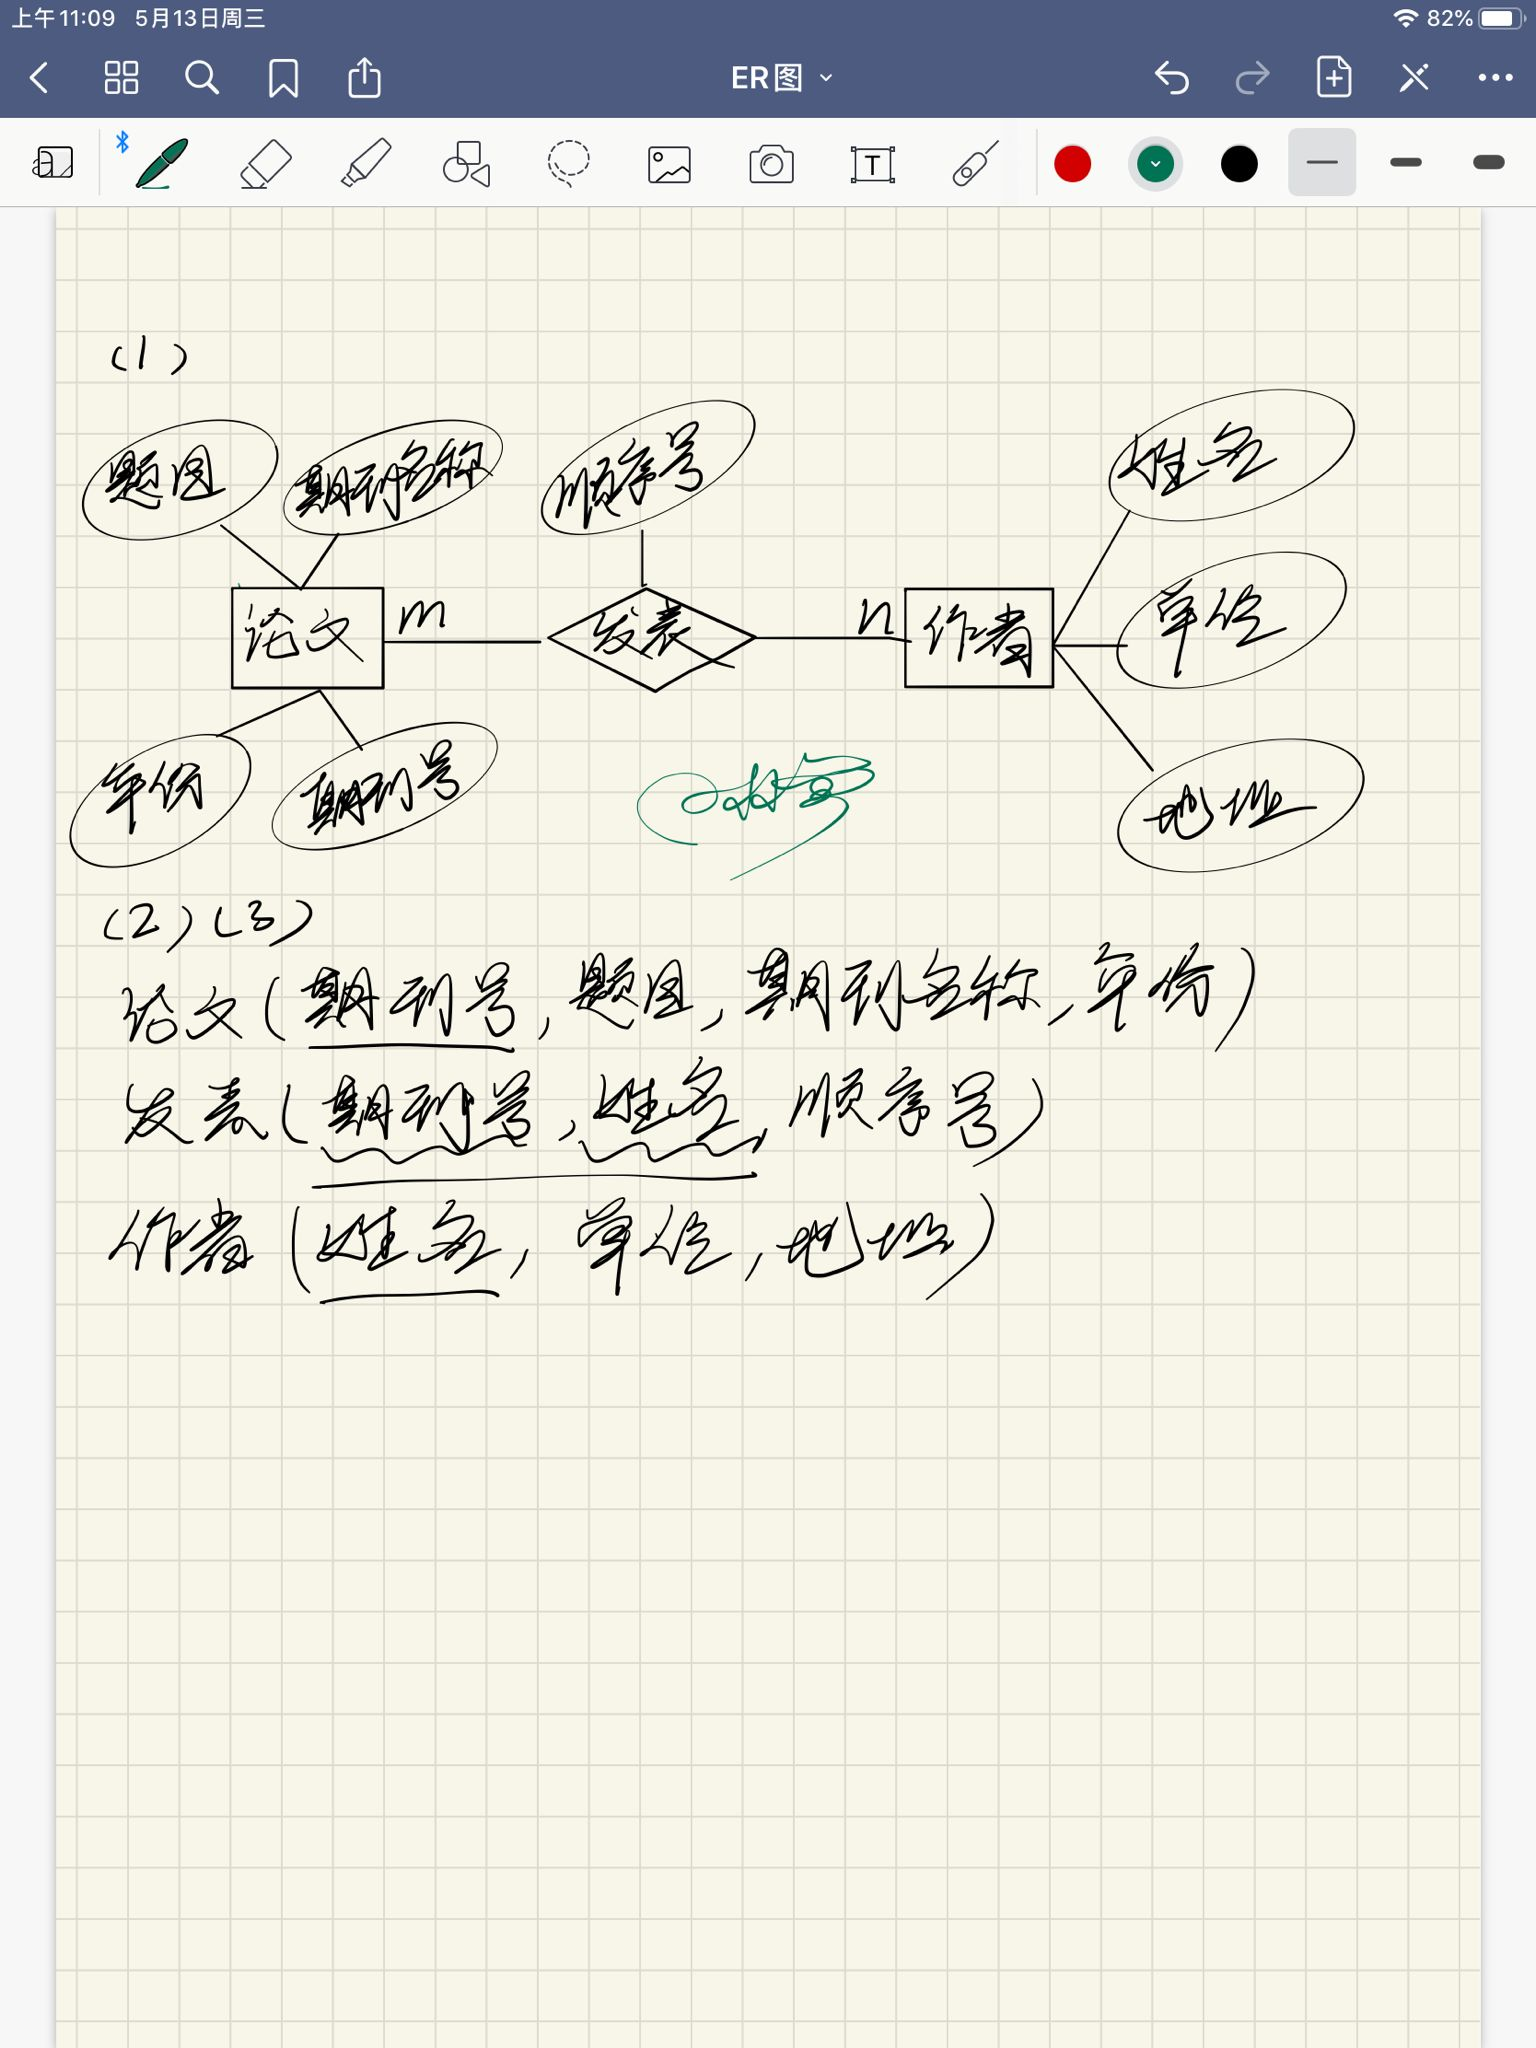 上午11:09 5月13日周三
82%
ER图
T
(1)
题图 期刊名称 顺序号 姓名
论文 m 发表 n 作者 单位
年份 期刊号 地址
(2)(3)
论文(期刊号,题图,期刊名称,年份)
发表(期刊号,姓名,顺序号)
作者(姓名,单位,地址)